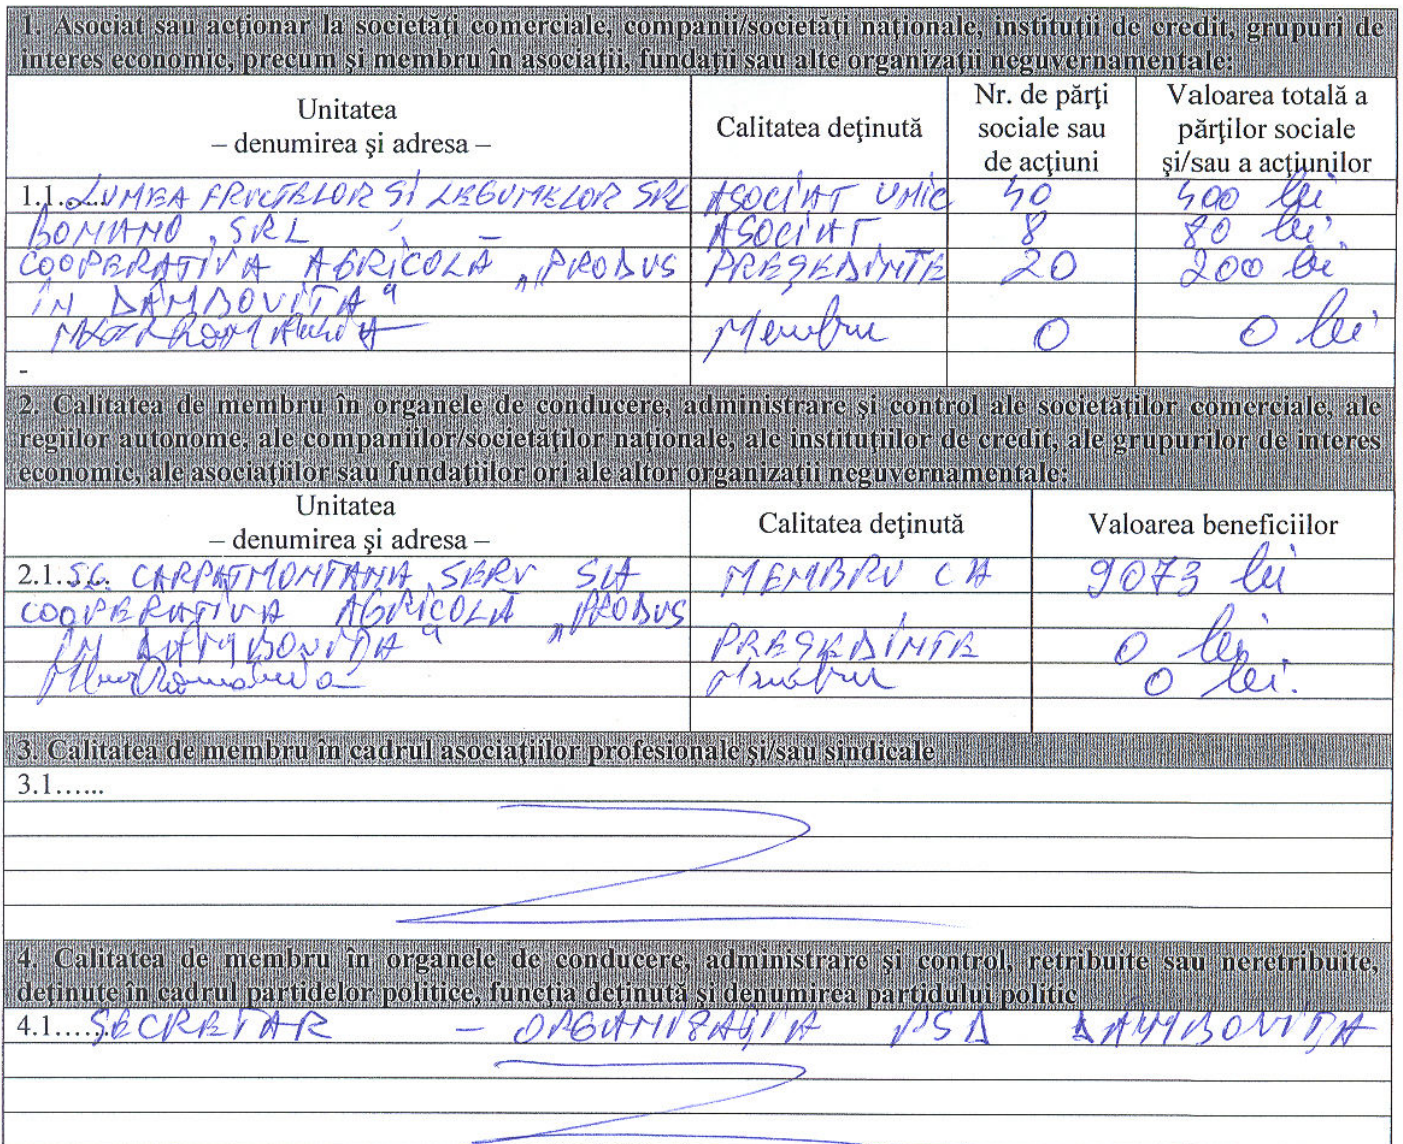 1. Asociat sau acționar la societăți comerciale, companii/societăți naționale, instituții de credit, grupuri de
interes economic, precum și membru în asociații, fundații sau alte organizații neguvernamentale:
Unitatea
– denumirea și adresa –
Calitatea deținută
Nr. de părți
sociale sau
de acțiuni
Valoarea totală a
părților sociale
și/sau a acțiunilor
1.1...... LUMEA FRUCTELOR SI LEGUMELOR SRL ASOCIAT UNIC 40 400 lei
BOMIANO SRL ASOCIAT 8 80 lei
COOPERATIVA AGRICOLĂ „PRODUS PREȘEDINTE 20 200 lei
IN DÂMBOVIȚA"
Membru 0 0 lei
-
2. Calitatea de membru în organele de conducere, administrare și control ale societăților comerciale, ale
regiilor autonome, ale companiilor/societăților naționale, ale instituțiilor de credit, ale grupurilor de interes
economic, ale asociațiilor sau fundațiilor ori ale altor organizații neguvernamentale:
Unitatea
– denumirea și adresa –
Calitatea deținută
Valoarea beneficiilor
2.1...... SC. CARPATMONTANA SERV SA MEMBRU CA 9073 lei
COOPERATIVA AGRICOLĂ „PRODUS
IN DÂMBOVIȚA" PREȘEDINTE 0 lei
Membru 0 lei.
3. Calitatea de membru în cadrul asociațiilor profesionale și/sau sindicale
3.1......
4. Calitatea de membru în organele de conducere, administrare și control, retribuite sau neretribuite,
deținute în cadrul partidelor politice, funcția deținută și denumirea partidului politic
4.1...... SECRETAR – ORGANIZAȚIA PSD DAMBOVIȚA